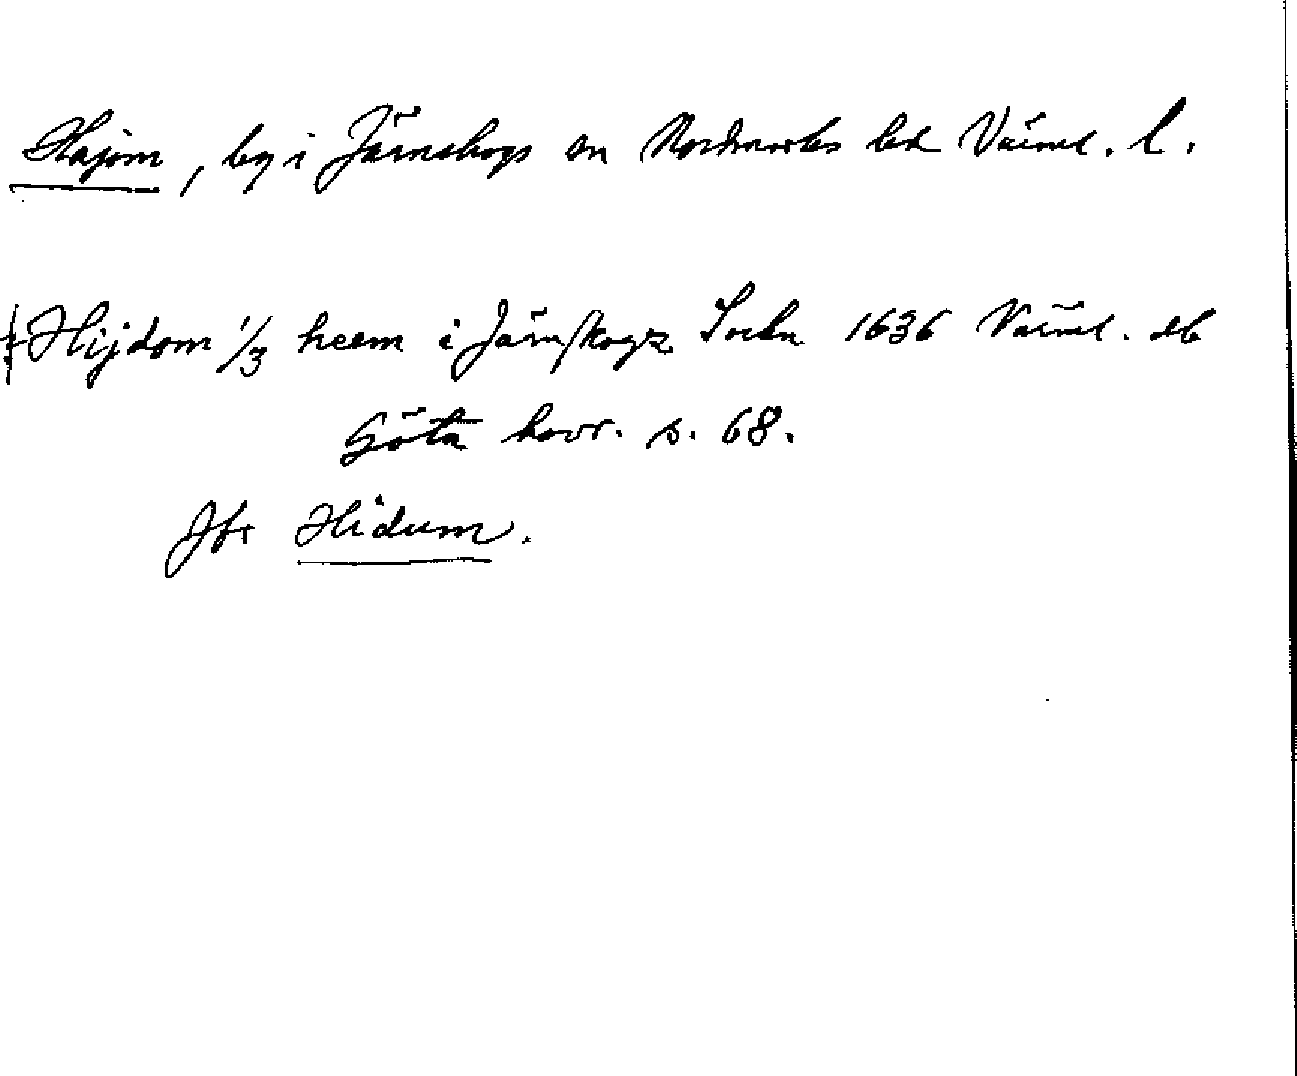 Hajom, by i Järnskogs sn Nordmarks hd Värml. l.
Hijdom 1/3 heem i Järnskogz Sockn 1636 Värml. db
Göta hovr. s. 68.
Jfr Hidum.